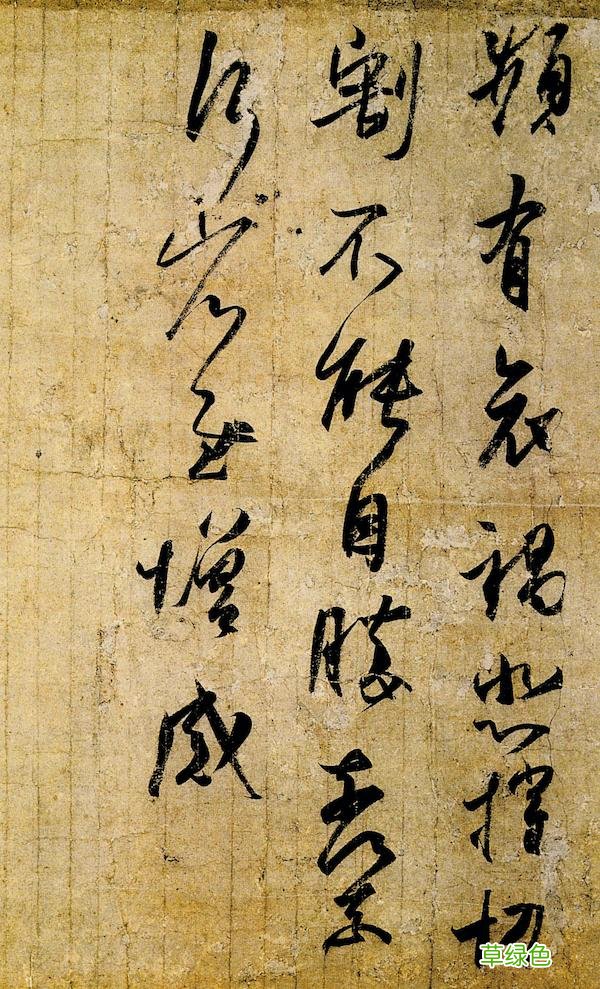 頻有哀禍悲摧切
割不能自勝奈何奈
何省慰增感
草绿色